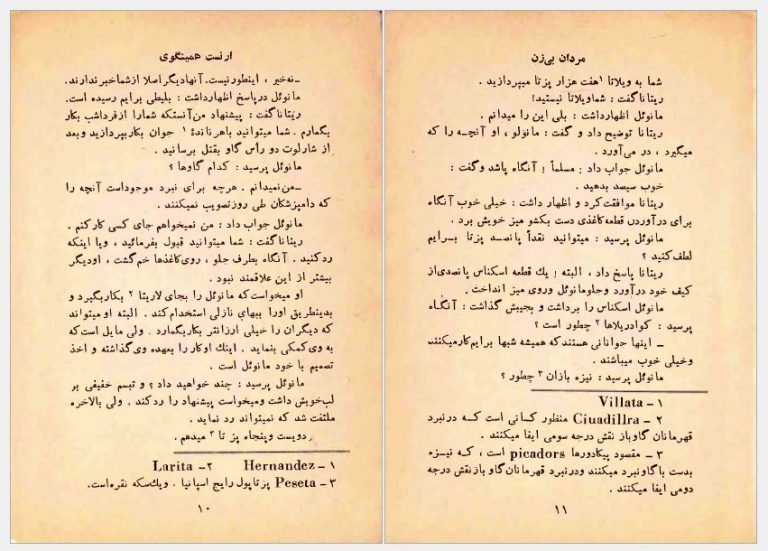 ارنست همینگوی
ـ نه‌خیر ، اینطور نیست. آنها دیگر اصلا از شما خبر ندارند.
مانوئل در پاسخ اظهار داشت : بلیطی برایم رسیده است.
ریتانا گفت : پیشنهاد من آنستکه شما را از فرداشب بکار
بگمارم . شما میتوانید باهر ناندهٔ ۱ جوان بکار بپردازید و بعد
از شارلوت دو رأس گاو بقتل برسانید .
مانوئل پرسید : کدام گاوها ؟
ـ من نمیدانم . هرچه برای نبرد موجود است آنچه را
که دامپزشکان طی روز تصویب نمیکنند .
مانوئل جواب داد : من نمیخواهم جای کسی کار کنم .
ریتانا گفت : شما میتوانید قبول بفرمائید ، ویا اینکه
رد کنید . آنگاه بطرف جلو ، روی کاغذها خم گشت ، او دیگر
بیشتر از این علاقمند نبود .
او میخواست که مانوئل را بجای لاریتا ۲ بکار بگیرد و
بدینطریق او را ببهای نازلی استخدام کند . البته او میتواند
که دیگران را خیلی ارزانتر بکار بگمارد . ولی مایل است که
به وی کمکی بنماید . اینك او کار را بعهده وی گذاشته و اخذ
تصمیم با خود مانوئل است .
مانوئل پرسید : چند خواهید داد ؟ و تبسم خفیفی بر
لب خویش داشت و میخواست پیشنهاد را رد کند . ولی بالاخره
ملتفت شد که نمیتواند رد نماید .
دویست و پنجاه پز تا ۳ میدهم .
۱ – Hernandez ۲ – Larita
۳ – Peseta پز تا پول رایج اسپانیا . و یك سکه نقره است.
۱۰
مردان بی‌زن
شما به ویلاتا ۱ هفت هزار پز تا میپردازید .
ریتانا گفت : شما ویلاتا نیستید!
مانوئل اظهار داشت : بلی این را میدانم .
ریتانا توضیح داد و گفت : مانولو ، او آنچه را که
میگیرد ، در می‌آورد .
مانوئل جواب داد : مسلماً ! آنگاه پاشد و گفت :
خوب سیصد بدهید .
ریتانا موافقت کرد و اظهار داشت : خیلی خوب آنگاه
برای در آوردن قطعه کاغذی دست بکشو میز خویش برد .
مانوئل پرسید : میتوانید نقداً پانصد پز تا برایم
لطف کنید ؟
ریتانا پاسخ داد ، البته ! یك قطعه اسکناس پانصدی از
کیف خود در آورد و جلو مانوئل و روی میز انداخت .
مانوئل اسکناس را برداشت و بجیبش گذاشت : آنگاه
پرسید : کوادریلاها ۲ چطور است ؟
ـ اینها جوانانی هستند که همیشه شبها برایم کار میکنند
و خیلی خوب میباشند .
مانوئل پرسید : نیزه بازان ۳ چطور ؟
۱ – Villata
۲ – Ciuadillra منظور کسانی است که در نبرد
قهرمانان گاوباز نقش درجه سومی ایفا میکنند .
۳ – مقصود پیکادورها picadors است ، که نیزه
بدست با گاو نبرد میکنند و در نبرد قهرمانان گاو باز نقش درجه
دومی ایفا میکنند .
۱۱